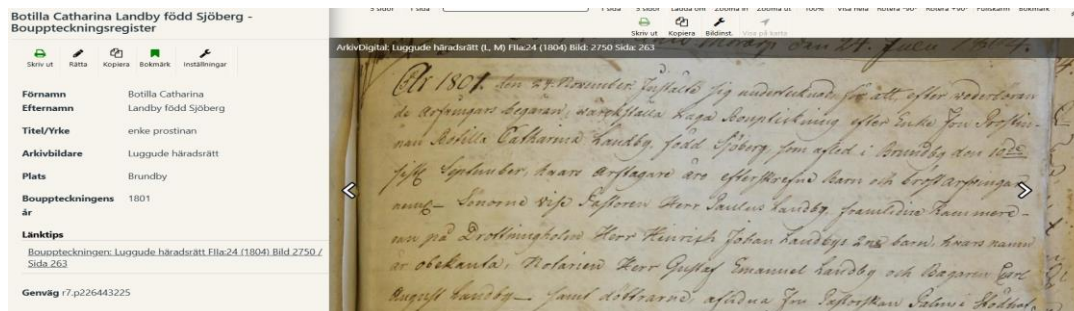 Botilla Catharina Landby född Sjöberg -
Bouppteckningsregister
Skriv ut Rätta Kopiera Bokmärk Inställningar
Förnamn Botilla Catharina
Efternamn Landby född Sjöberg
Titel/Yrke enke prostinan
Arkivbildare Luggude häradsrätt
Plats Brundby
Bouppteckningens 1801
år
Länktips
Bouppteckningen: Luggude häradsrätt FIIa:24 (1804) Bild 2750 /
Sida 263
Genväg r7.p226443225
Skriv ut Kopiera Bildinst. Visa på karta
ArkivDigital: Luggude häradsrätt (L, M) FIIa:24 (1804) Bild: 2750 Sida: 263
den 24. Julii 1804.
År 1801. den 27. November Instälte sig undertecknade för att, efter wederböran
de Arfwingars begäran, wärckställa Laga bouptekning efter Enke Fru Prostin-
nan Botilla Catharina Landby, född Sjöberg, som afled i Brundby den 10de
sistl September, hwars arftagare äro efterskrefne Barn och bröst arfwingar
nemn- Sönerne Herr Paulus Landby, framlidne Kammere-
ren på Drottningholm Herr Hinrich Johan Landbys 2ne barn, hwars namn
är obekanta, Notarien Herr Gustaf Emanuel Landby och Bagaren Carl
August Landby - samt döttrarne, aflidna Fru Pastorskan